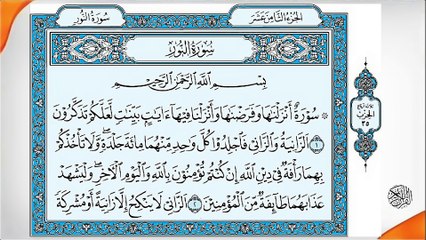 سُورَةُ النُّورِ
الجُزْءُ الثَّامِنَ عَشَرَ
سُورَةُ النُّورِ
بِسْمِ اللَّهِ الرَّحْمَٰنِ الرَّحِيمِ
سُورَةٌ أَنزَلْنَٰهَا وَفَرَضْنَٰهَا وَأَنزَلْنَا فِيهَآ ءَايَٰتٍۭ بَيِّنَٰتٍ لَّعَلَّكُمْ تَذَكَّرُونَ
١ ٱلزَّانِيَةُ وَٱلزَّانِى فَٱجْلِدُوا۟ كُلَّ وَٰحِدٍ مِّنْهُمَا مِا۟ئَةَ جَلْدَةٍ ۖ وَلَا تَأْخُذْكُم
بِهِمَا رَأْفَةٌ فِى دِينِ ٱللَّهِ إِن كُنتُمْ تُؤْمِنُونَ بِٱللَّهِ وَٱلْيَوْمِ ٱلْءَاخِرِ ۖ وَلْيَشْهَدْ
عَذَابَهُمَا طَآئِفَةٌ مِّنَ ٱلْمُؤْمِنِينَ ٢ ٱلزَّانِى لَا يَنكِحُ إِلَّا زَانِيَةً أَوْ مُشْرِكَةً
الحِزْب
٣٥